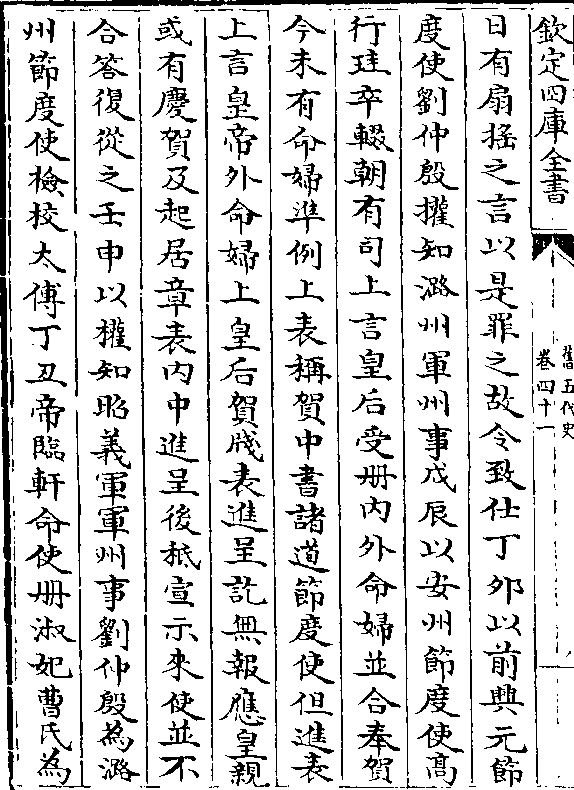 欽定四庫全書
舊五代史
卷四十一
日有扇搖之言以是罪之故令致仕丁夘以前興元節
度使劉仲殷權知潞州軍州事戊辰以安州節度使髙
行珪卒輟朝有司上言皇后受册内外命婦並合奉賀
今未有命婦準例上表稱賀中書諸道節度使但進表
上言皇帝外命婦上皇后賀牋表進呈訖無報應皇親
或有慶賀及起居章表内中進呈後秪宣示來使並不
合答復從之壬申以權知昭義軍軍州事劉仲殷為潞
州節度使檢校太傅丁丑帝臨軒命使册淑妃曹氏為